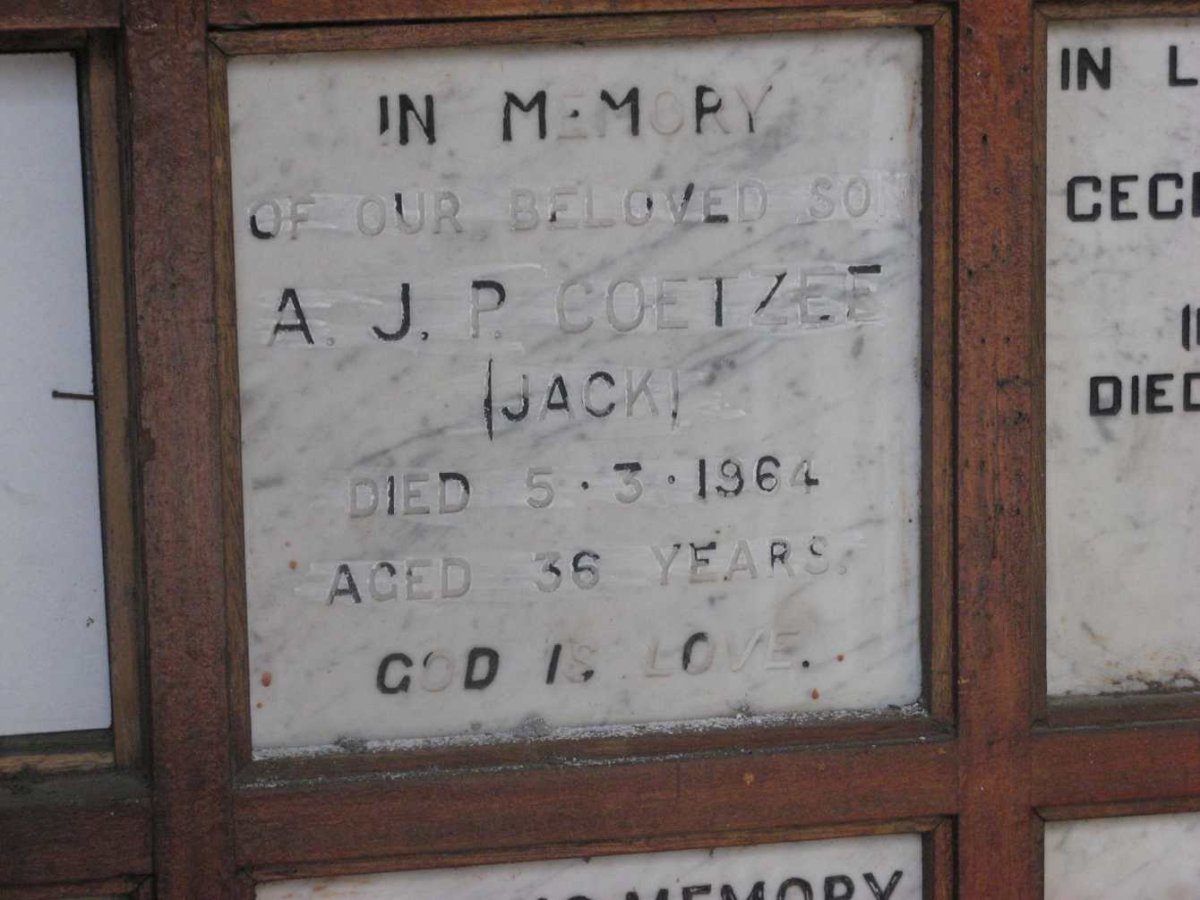 IN MEMORY
OF OUR BELOVED SON
A. J. P. COETZEE
(JACK)
DIED 5·3·1964
AGED 36 YEARS.
GOD IS LOVE.
IN
DIED
MEMORY